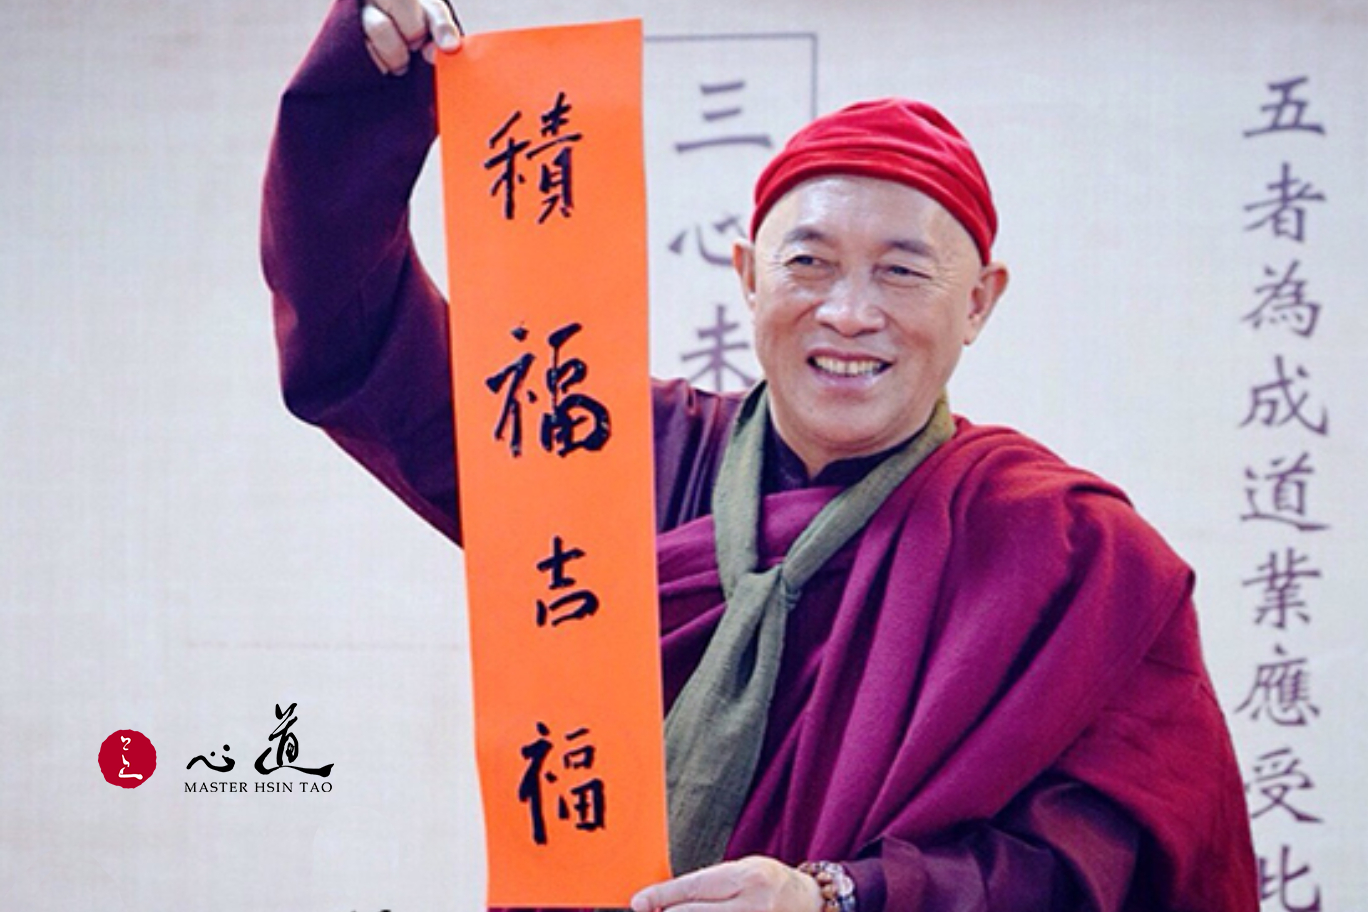 積福吉福
三心未
五者為成道業應受此
心道
MASTER HSIN TAO